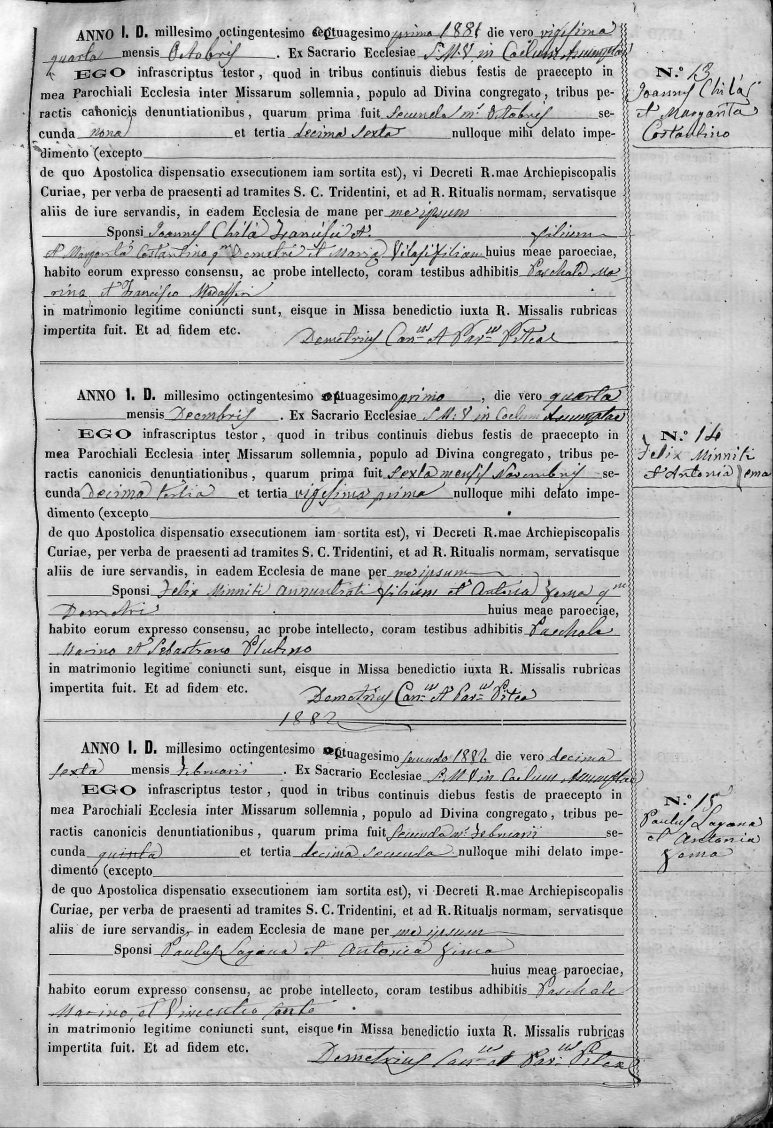 ANNO I. D. millesimo octingentesimo octuagesimo primo 1881 die vero vigesima
quarta mensis Octobris . Ex Sacrario Ecclesiae S. M. V. in Caelum Assumptae
EGO infrascriptus testor, quod in tribus continuis diebus festis de praecepto in
mea Parochiali Ecclesia inter Missarum sollemnia, populo ad Divina congregato, tribus pe-
ractis canonicis denuntiationibus, quarum prima fuit secunda m. Octobris se-
cunda nona et tertia decima sexta nulloque mihi delato impe-
dimento (excepto
de quo Apostolica dispensatio exsecutionem iam sortita est), vi Decreti R.mae Archiepiscopalis
Curiae, per verba de praesenti ad tramites S. C. Tridentini, et ad R. Ritualis normam, servatisque
aliis de iure servandis, in eadem Ecclesia de mane per me ipsum
Sponsi Joannes Chilà Francisci et filium
et Margarita Costantino qm Demetri et Maria Vilasi filiam huius meae paroeciae,
habito eorum expresso consensu, ac probe intellecto, coram testibus adhibitis Paschale Ma
rino et Francisco Modafferi
in matrimonio legitime coniuncti sunt, eisque in Missa benedictio iuxta R. Missalis rubricas
impertita fuit. Et ad fidem etc. Demetrius Can.us et Par.us Pitea
N.° 13
Joannes Chilà
et Margarita
Costantino
ANNO I. D. millesimo octingentesimo octuagesimo primo , die vero quarta
mensis Decembris . Ex Sacrario Ecclesiae S. M. V in Caelum Assumptae
EGO infrascriptus testor, quod in tribus continuis diebus festis de praecepto in
mea Parochiali Ecclesia inter Missarum sollemnia, populo ad Divina congregato, tribus pe-
ractis canonicis denuntiationibus, quarum prima fuit sexta mensis Novembris se-
cunda decima tertia et tertia vigesima prima nulloque mihi delato impe-
dimento (excepto
de quo Apostolica dispensatio exsecutionem iam sortita est), vi Decreti R.mae Archiepiscopalis
Curiae, per verba de praesenti ad tramites S. C. Tridentini, et ad R. Ritualis normam, servatisque
aliis de iure servandis, in eadem Ecclesia de mane per me ipsum
Sponsi Felix Minniti Annuntiati filium et Antonia Zema qm
Demetri huius meae paroeciae,
habito eorum expresso consensu, ac probe intellecto, coram testibus adhibitis Paschale
Marino et Sebastiano Plutino
in matrimonio legitime coniuncti sunt, eisque in Missa benedictio iuxta R. Missalis rubricas
impertita fuit. Et ad fidem etc. Demetrius Can.us et Par.us Pitea
N.° 14
Felix Minniti
et Antonia Zema
1882
ANNO I. D. millesimo octingentesimo octuagesimo secundo 1882 die vero decima
sexta mensis Februarii . Ex Sacrario Ecclesiae S. M V in Caelum Assumptae
EGO infrascriptus testor, quod in tribus continuis diebus festis de praecepto in
mea Parochiali Ecclesia inter Missarum sollemnia, populo ad Divina congregato, tribus pe-
ractis canonicis denuntiationibus, quarum prima fuit secunda m. Februarii se-
cunda quinta et tertia decima secunda nulloque mihi delato impe-
dimento (excepto
de quo Apostolica dispensatio exsecutionem iam sortita est), vi Decreti R.mae Archiepiscopalis
Curiae, per verba de praesenti ad tramites S. C. Tridentini, et ad R. Ritualis normam, servatisque
aliis de iure servandis, in eadem Ecclesia de mane per me ipsum
Sponsi Paulus Lagana et Antonia Zema
huius meae paroeciae,
habito eorum expresso consensu, ac probe intellecto, coram testibus adhibitis Paschale
Marino, et Vincentio
in matrimonio legitime coniuncti sunt, eisque in Missa benedictio iuxta R. Missalis rubricas
impertita fuit. Et ad fidem etc. Demetrius Can.us et Par.us Pitea
N.° 15
Paulus Lagana
et Antonia
Zema